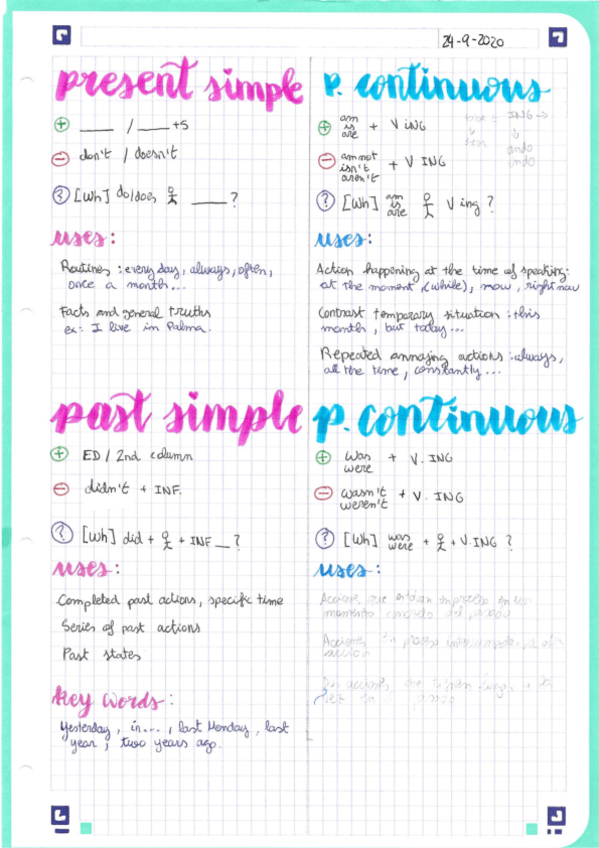 24-9-2020
present simple
⊕ ____ / ____ +s
⊖ don't / doesn't
? [Wh] do/does ____ ?
uses:
Routines : every day, always, often,
once a month...
Facts and general truths
ex: I live in Palma.
p. continuous
⊕ am
is + V ING
are
⊖ am not
isn't + V ING
aren't
? [Wh] am
is V ing ?
are
ING →
ando
endo
uses:
Action happening at the time of speaking:
at the moment, (while), now, right now
Contrast temporary situation : this
month, but today...
Repeated annoying actions : always,
all the time, constantly...
past simple
⊕ ED / 2nd column
⊖ didn't + INF.
? [Wh] did + + INF __ ?
uses:
Completed past actions, specific time
Series of past actions
Past states
key words:
Yesterday, in..., last Monday, last
year, two years ago.
p. continuous
⊕ was + V. ING
were
⊖ wasn't + V. ING
weren't
? [Wh] was + + V.ING ?
were
uses:
Acciones que estaban en proceso en un
momento concreto del pasado
Acciones en proceso
acción
acciones que